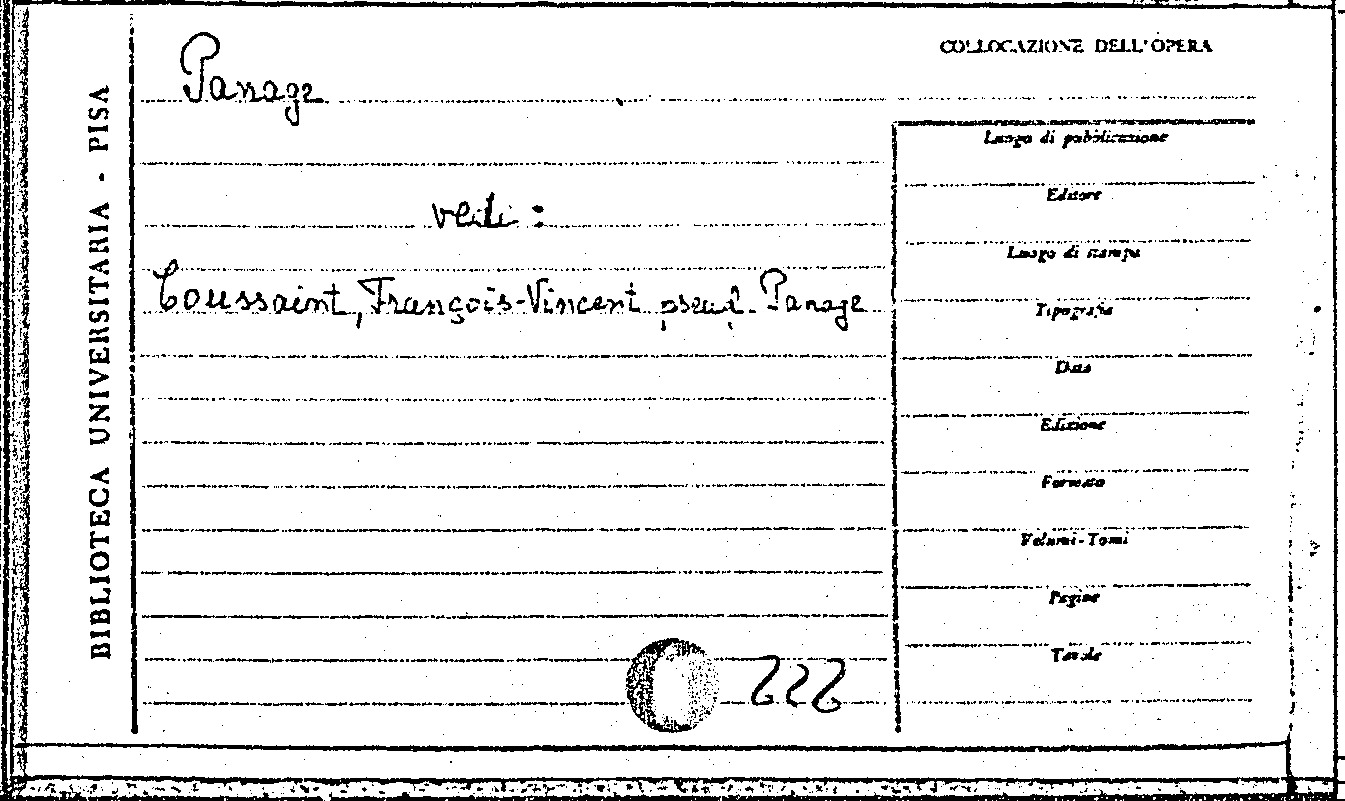 BIBLIOTECA UNIVERSITARIA - PISA
COLLOCAZIONE DELL'OPERA
Panage
Luogo di pubblicazione
Editore
vedi:
Luogo di stampa
Toussaint, François-Vincent pseud. Panage
Tipografia
Data
Edizione
Formato
Volumi-Tomi
Pagine
Tavole